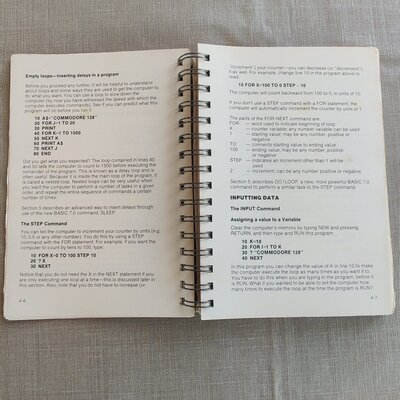 Empty loops—Inserting delays in a program
Before you proceed any further, it will be helpful to understand
about loops and some ways they are used to get the computer to
do what you want. You can use a loop to slow down the
computer (by now you have witnessed the speed with which the
computer executes commands). See if you can predict what this
program will do before you run it.
10 A$="COMMODORE 128"
20 FOR J=1 TO 20
30 PRINT
40 FOR K=1 TO 1500
50 NEXT K
60 PRINT A$
70 NEXT J
80 END
Did you get what you expected? The loop contained in lines 40
and 50 tells the computer to count to 1500 before executing the
remainder of the program. This is known as a delay loop and is
often useful. Because it is inside the main loop of the program, it
is called a nested loop. Nested loops can be very useful when
you want the computer to perform a number of tasks in a given
order, and repeat the entire sequence of commands a certain
number of times.
Section 5 describes an advanced way to insert delays through
use of the new BASIC 7.0 command, SLEEP
The STEP Command
You can tell the computer to increment your counter by units (e.g.
10, 0.5 or any other number). You do this by using a STEP
command with the FOR statement. For example, if you want the
computer to count by tens to 100, type:
10 FOR X=0 TO 100 STEP 10
20 ? X
30 NEXT
Notice that you do not need the X in the NEXT statement if you
are only executing one loop at a time—this is discussed later in
this section. Also, note that you do not have to increase (or
4-6
"increment") your counter—you can decrease (or "decrement")
it as well. For example, change line 10 in the program above to
read:
10 FOR X=100 TO 0 STEP - 10
The computer will count backward from 100 to 0, in units of 10.
If you don't use a STEP command with a FOR statement, the
computer will automatically increment the counter by units of 1
The parts of the FOR-NEXT command are:
FOR — word used to indicate beginning of loop
X — counter variable; any number variable can be used
1 — starting value; may be any number, positive
or negative
TO — connects starting value to ending value
— ending value; may be any number, positive or
negative
STEP — indicates an increment other than 1 will be
used
2 — increment; can be any number, positive
or negative
Section 5 describes DO/LOOP, a new, more powerful BASIC 7.0
command to perform a similar task to the STEP command.
INPUTTING DATA
The INPUT Command
Assigning a value to a Variable
Clear the computer's memory by typing NEW and pressing
RETURN, and then type and RUN this program.
10 K=10
20 FOR I=1 TO K
30 ? "COMMODORE 128"
40 NEXT
In this program you can change the value of K in line 10 to make
the computer execute the loop as many times as you want it to.
You have to do this when you are typing in the program, before it
is RUN. What if you wanted to be able to tell the computer how
many times to execute the loop at the time the program is RUN?
4-7